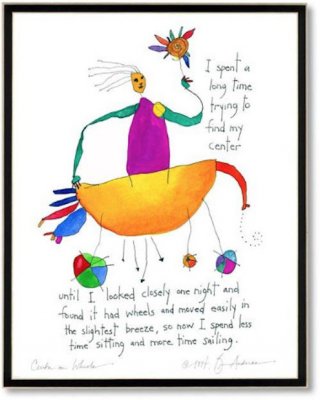 I spent a
long time
trying to
find my
center
until I looked closely one night and
found it had wheels and moved easily in
the slightest breeze, so now I spend less
time sitting and more time sailing.
Center on Wheels